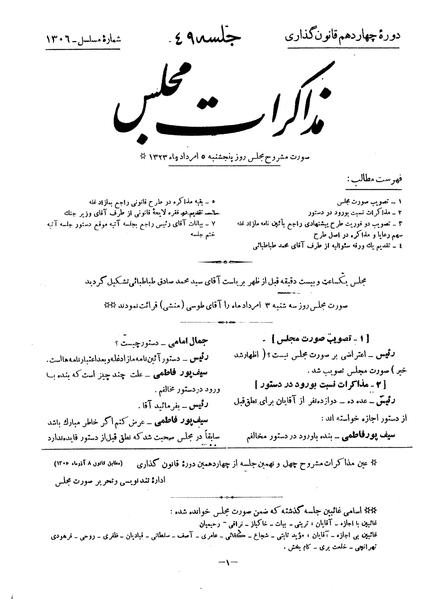 دورهٔ چهاردهم قانون‌گذاری
جلسه ۴۹
شمارهٔ مسلسل ـ ۱۳۰۶
مذاکرات مجلس
صورت مشروح مجلس روز پنجشنبه ۵ امرداد ماه ۱۳۲۳ ※
فهرست مطالب:
۱ ـ تصویب صورت مجلس
۲ ـ مذاکرات نسبت بورود در دستور
۳ ـ تصویب دو فوریت طرح پیشنهادی راجع بآئین نامه مازاد غله
سهم رعایا و مذاکره در اصل طرح
۴ ـ تقدیم یک ورقه سئوالیه از طرف آقای محمد طباطبائی
۵ ـ بقیه مذاکره در طرح قانونی راجع بمازاد غله
تقدیم دو فقره لایحهٔ قانونی از طرف آقای وزیر جنگ
۷ ـ بیانات آقای رئیس راجع بجلسه آتیه موقع دستور جلسه آتیه
ختم جلسه
مجلس یکساعت و بیست دقیقه قبل از ظهر بریاست آقای سید محمد صادق طباطبائی تشکیل گردید
صورت مجلس روز سه شنبه ۳ امرداد ماه را آقای طوسی (منشی) قرائت نمودند ※※
[۱ ـ تصویب صورت مجلس]
رئیس ـ اعتراضی بر صورت مجلس نیست؟ (اظهار شد
خیر) صورت مجلس تصویب شد.
[۲ ـ مذاکرات نسبت بورود در دستور]
رئیس ـ عده ده ـ دوازده نفر از آقایان برای نطق قبل
از دستور اجازه خواسته اند:
سیف پور فاطمی ـ بنده باورود در دستور مخالفم
جمال امامی ـ دستور چیست؟
رئیس ـ دستور آئین نامه مازاد غله و بعد اعتبار نامه هاست.
سیف پور فاطمی ـ علت چند چیز است که بنده با
ورود در دستور مخالفم.
رئیس ـ بفرمائید آقا.
سیف پور فاطمی ـ عرض کنم اگر خاطر مبارک باشد
سابقاً در مجلس صحبت شد که نطق قبل از دستور فایده ندارد
※ عین مذاکرات مشروح چهل و نهمین جلسه از چهاردهمین دورهٔ قانون گذاری (مطابق قانون ۸ آذر ماه ۱۳۰۵)
ادارهٔ تندنویسی و تحریر صورت مجلس
※※ اسامی غائبین جلسه گذشته که ضمن صورت مجلس خوانده شده:
غائبین با اجازه ـ آقایان: تربتی ـ بیات ـ خاکباز ـ نراقی ـ رحیمیان
غائبین بی اجازه ـ آقایان: مؤید ثابتی ـ شجاع ـ عامری ـ آصف ـ سلطانی ـ قبادیان ـ ظفری ـ روحی ـ فرهودی
تهرانچی ـ خلعت بری ـ کام بخش.
ـ ۱ ـ